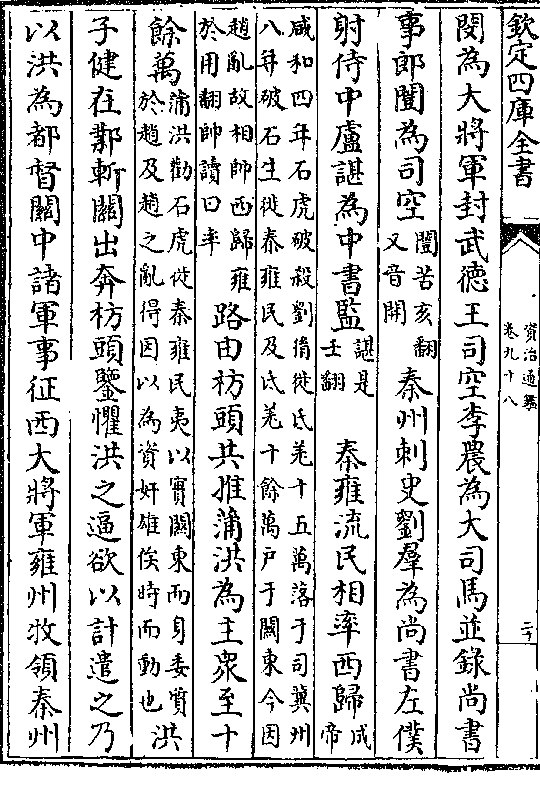 欽定四庫全書
資治通鑑
卷九十八
二十
閔為大將軍封武德王司空李農為大司馬並錄尚書
事郎闓為司空闓苦亥翻
又音開秦州刺史劉羣為尚書左僕
射侍中盧諶為中書監諶是
壬翻秦雍流民相率西歸成
帝
咸和四年石虎破殺劉𦙍徙氐羌十五萬落于司冀州
八年破石生徙秦雍民及氐羌十餘萬户于關東今因
趙亂故相帥西歸雍
於用翻帥讀曰率路由枋頭共推蒲洪為主衆至十
餘萬蒲洪勸石虎徙秦雍民夷以實關東而身委質
於趙及趙之亂得因以為資奸雄俟時而動也洪
子健在鄴斬關出奔枋頭鑒懼洪之逼欲以計遣之乃
以洪為都督關中諸軍事征西大將軍雍州牧領秦州